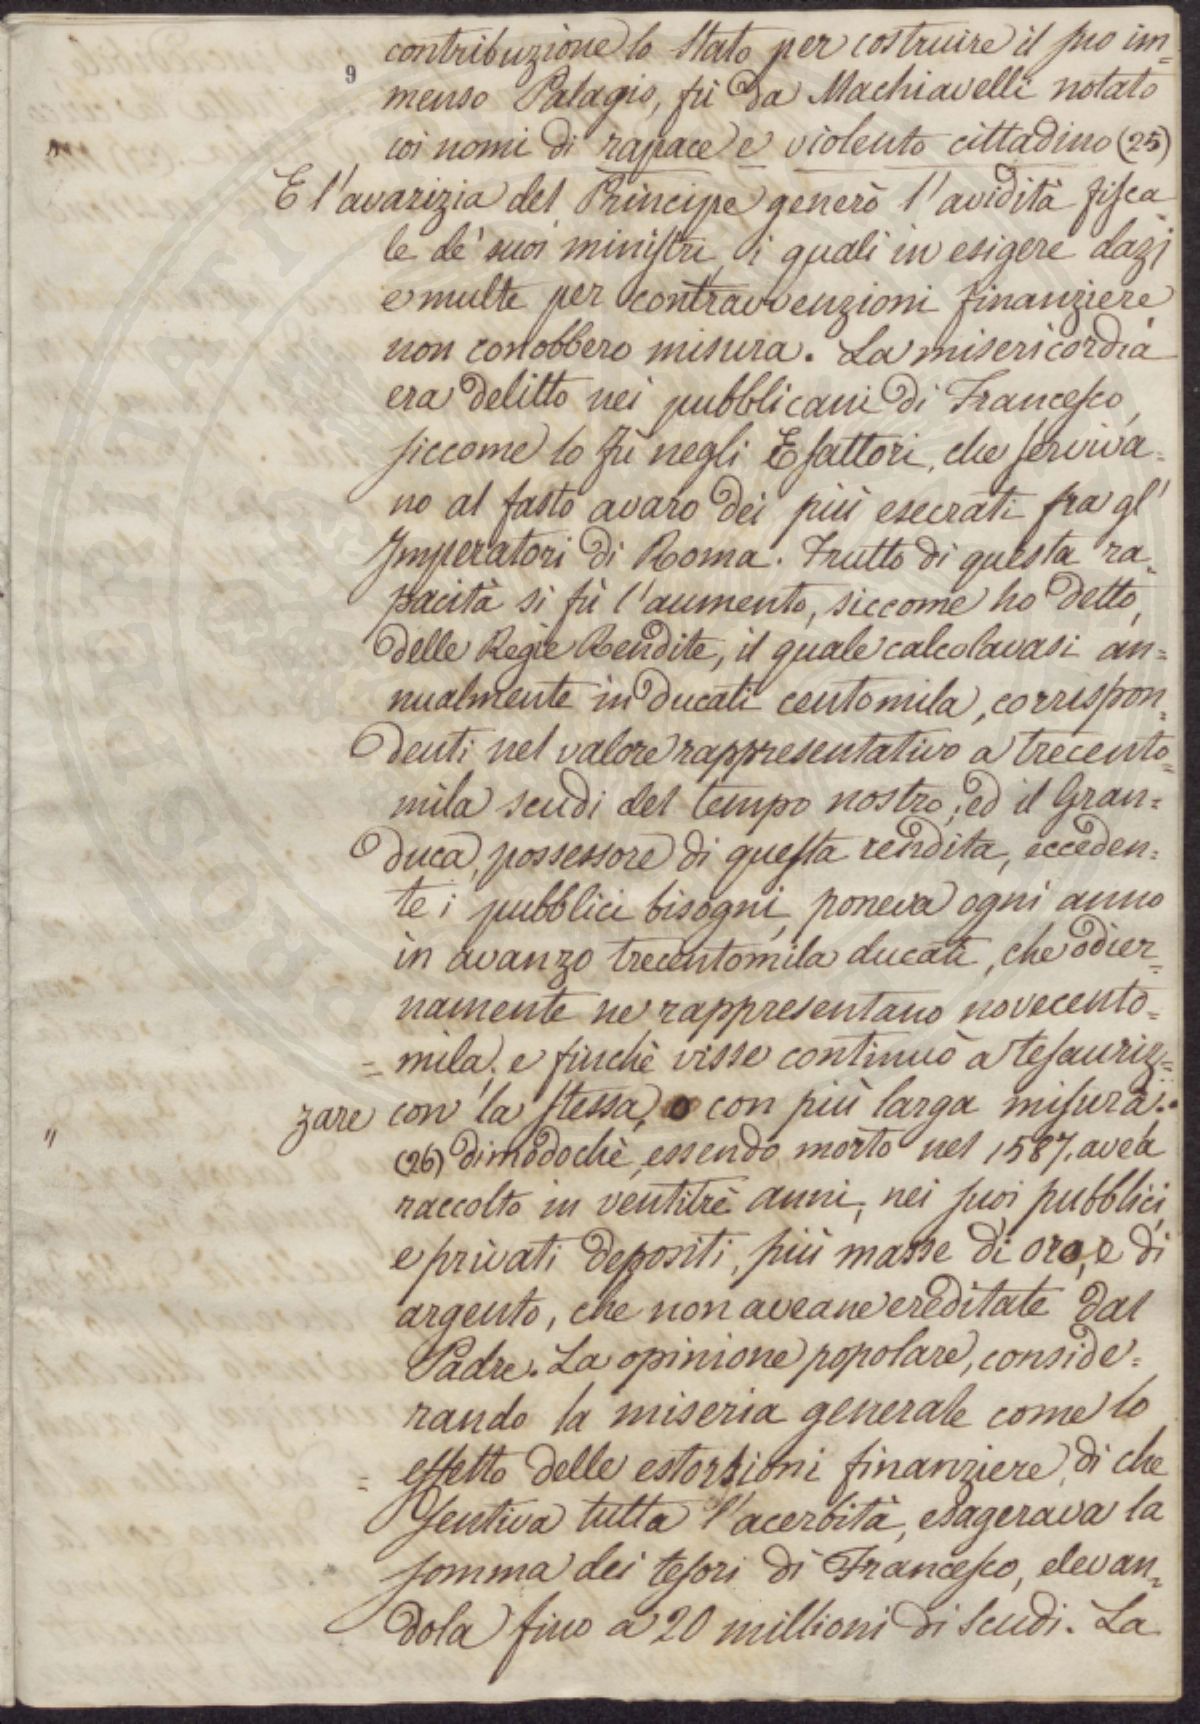 contribuzione lo Stato per costruire il suo im=
9
menso Palagio, fù da Machiavelli notato
coi nomi di rapace e violento cittadino (25)
E l'avarizia del Principe generò l'avidità fisca
le de' suoi ministri, i quali in esigere dazj
e multe per contravvenzioni finanziere
non conobbero misura. La misericordia
era delitto nei pubblicani di Francesco,
siccome lo fù negli Esattori, che serviva=
no al fasto avaro dei più esecrati fra gl'
Imperatori di Roma. Frutto di questa ra=
pacità si fù l'aumento, siccome ho detto,
delle Regie Rendite, il quale calcolavasi an=
nualmente in Ducati centomila, corrispon=
denti nel valore rappresentativo a trecento=
mila scudi del tempo nostro; ed il Gran=
duca, possessore di questa rendita, eccéden=
te i pubblici bisogni, poneva ogni anno
in avanzo trecentomila ducati, che odier=
namente ne rappresentano novecento=
= mila; e finchè visse continuò a tesauriz=
zare con la stessa, o con più larga misura.
" (26) dimodochè, essendo morto nel 1587, avea
raccolto in ventitrè anni, nei suoi pubblici
e privati depositi, più masse di oro, e di
argento, che non aveane ereditate dal
Padre. La opinione popolare, conside=
rando la miseria generale come lo
= effetto delle estorsioni finanziere, di che
sentiva tutta l'acerbità, esagerava la
somma dei tesori di Francesco, elevan=
dola fino a 20 millioni di Scudi. La
PROSPERITATI